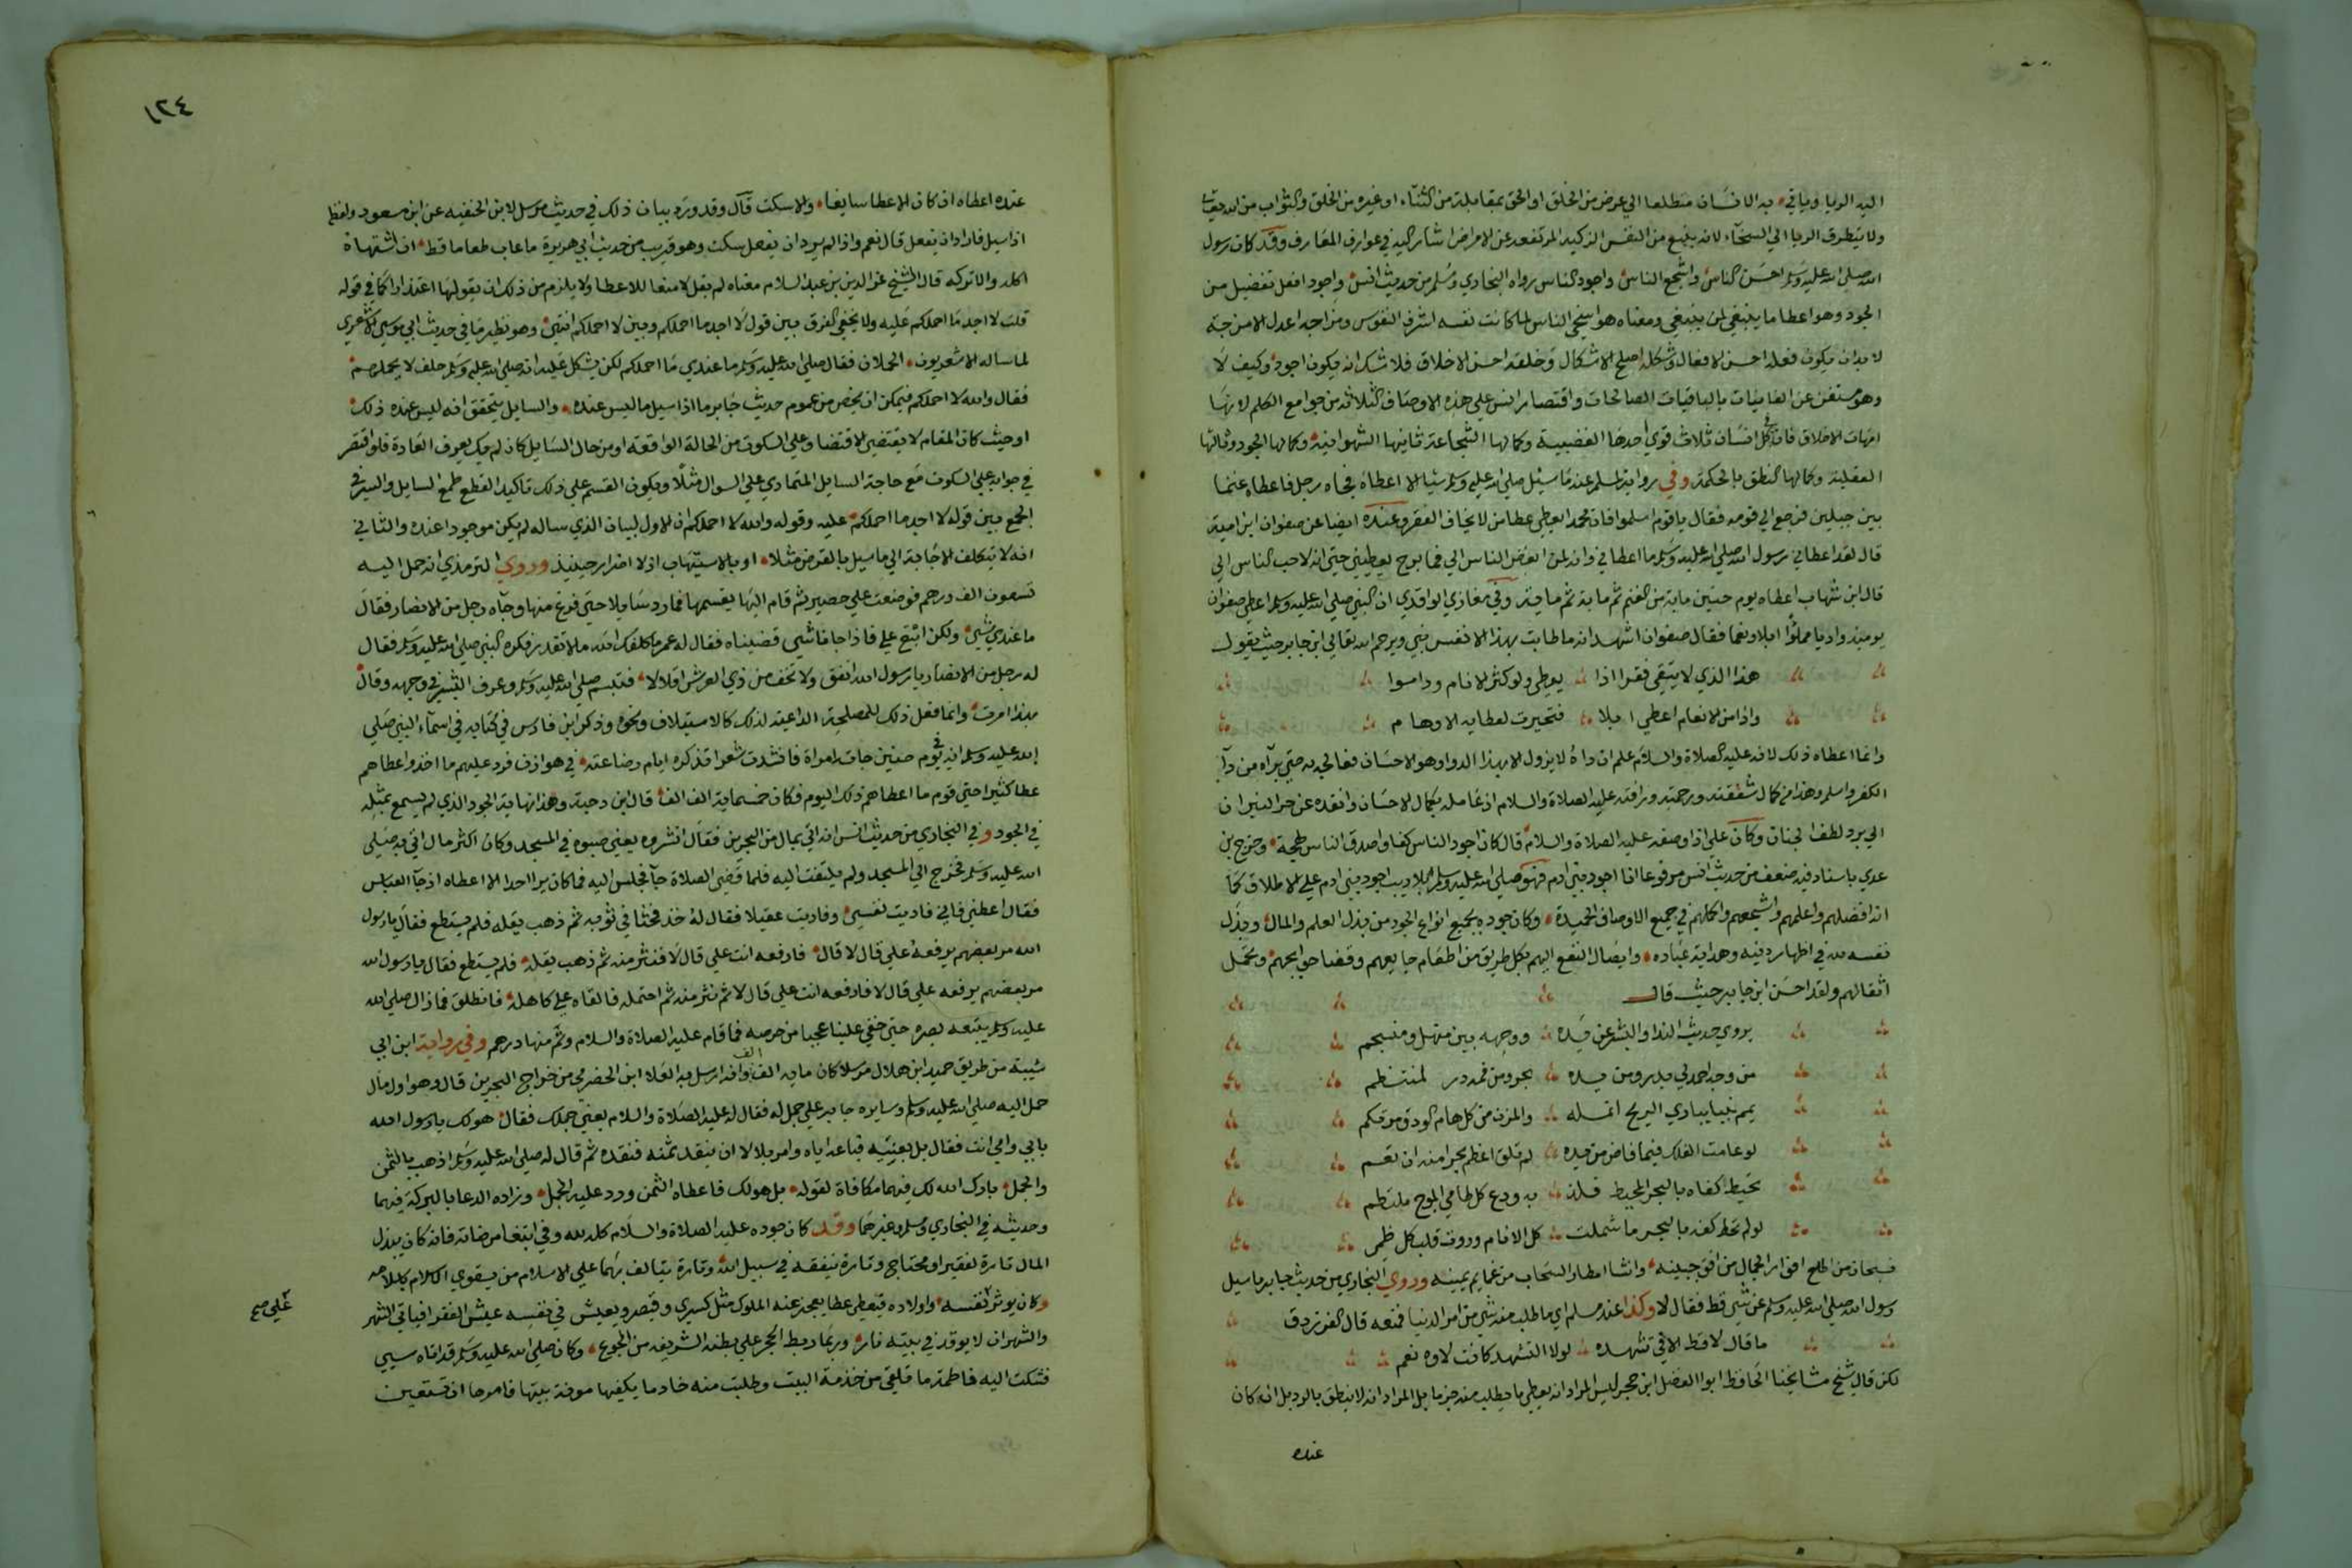 اليه الريا وياتي به الانسان متطلعا الي عوض من الخلق او الحق بمقابلة من الثناء او غيره من الخلق والثواب من الله تعالى
ولا يتطرق الريا الي السخاء لانه ينبع من النفس الزكية المرتفعة عن الاعراض اشار اليه في عوارف المعارف وقد كان رسول
الله صلي الله عليه وسلم احسن الناس واشجع الناس واجود الناس رواه البخاري ومسلم من حديث انس واجود افعل تفضيل من
الجود وهو اعطا ما ينبغي لمن ينبغي ومعناه هو اسخي الناس لما كانت نفسه اشرف النفوس ومزاجه اعدل الامزجة
لا بد ان يكون فعله احسن الافعال وشكله اصلح الاشكال وخلقه احسن الاخلاق فلا شك انه يكون اجود وكيف لا
وهو مستغن عن الفانيات بالباقيات الصالحات واقتصار انس علي هذه الاوصاف الثلاثة من جوامع الكلم لانها
امهات الاخلاق فان كل انسان ثلاث قوي احدها الغضبية وكمالها الشجاعة ثانيها الشهوانية وكمالها الجود وثالثها
العقلية وكمالها النطق بالحكمة وفي رواية لمسلم عنه ما سئل صلي الله عليه وسلم شيا الا اعطاه فجاه رجل فاعطاه غنما
بين جبلين فرجع الي قومه فقال يا قوم اسلموا فان محمدا يعطي عطا من لا يخاف الفقر وعنده ايضا عن صفوان ابن امية
قال لقد اعطاني رسول الله صلي الله عليه وسلم ما اعطاني وانه لمن ابغض الناس الي فما برح يعطيني حتي انه لاحب الناس الي
قال ابن شهاب اعطاه يوم حنين ماية من الغنم ثم ماية ثم ماية وفي مغازي الواقدي ان النبي صلي الله عليه وسلم اعطي صفوان
يوميذ واديا مملوا ابلا ونعما فقال صفوان اشهد انه ما طابت بهذا الا نفس نبي ويرحم الله تعالي ابن جابر حيث يقول
هذا الذي لا يتقي فقرا اذا يعطي ولو كثر الانام وداموا
واد من الانعام اعطي ابلا فتحيرت لعطايه الاوهام
وانما اعطاه ذلك لانه عليه الصلاة والسلام علم ان داه لا يزول الا بهذا الدوا وهو الاحسان فعالجه به حتي برآه من دآ
الكفر واسلم وهذا من كمال شفقته ورحمته ورافته عليه الصلاة والسلام اذ عامله بكمال الاحسان وانقذه من حر النيران
الي برد لطف الجنان وكان علي اذا وصفه عليه الصلاة والسلام قال كان اجود الناس كفا واصدق الناس لهجة وخرج بن
عدي باسناد فيه ضعف من حديث انس مرفوعا انا اجود بني ادم فهو صلي الله عليه وسلم بلا ريب اجود بني ادم علي الاطلاق كما
انه افضلهم واعلمهم واشجعهم واكملهم في جميع الاوصاف الحميدة وكان جوده بجميع انواع الجود من بذل العلم والمال وبذل
نفسه لله في اظهار دينه وهداية عباده وايصال النفع اليهم بكل طريق من اطعام جايعهم وقضا حوايجهم وتحمل
اثقالهم ولقد احسن ابن جابر حيث قال
يروي حديث الندا والبشر عن يده ووجهه بين منهل ومنسجم
من وجه احمد لي بدر ومن يده بحر ومن فمه در لمنتظم
يمم نبيا يباري الريح انمله والمزن من كل هام الودق مرتكم
لو عامت الفلك فيما فاض من يده لم تلق اعظم بحرا منه ان تعم
تحيط كفاه بالبحر المحيط فلذ به ودع كل طامي الموج ملتطم
لو لم تحط كفه بالبحر ما شملت كل الانام وروت قلب كل ظم
فسبحان من اطلع انوار الجمال من افق جبينه وانشا امطار السحاب من غمايم يمينه وروي البخاري من حديث جابر ما سيل
رسول الله صلي الله عليه وسلم عن شي قط فقال لا وكذا عند مسلم اي ما طلب منه شي من امر الدنيا فمنعه قال الفرزدق
ما قال لا قط الا في تشهده لولا التشهد كانت لاوه نعم
لكن قال شيخ مشايخنا الحافظ ابوا الفضل ابن حجر ليس المراد انه يعطي ما يطلب منه جزما بل المراد انه لا ينطق بالرد بل ان كان
عنده
١٢٤
عنده اعطاه ان كان الاعطا سايغا والا سكت قال وقد ورد بيان ذلك في حديث مرسل لابن الحنفيه عن ابن مسعود ولفظه
اذا سيل فاراد ان يفعل قال نعم واذا لم يرد ان يفعل سكت وهو قريب من حديث ابي هريرة ما عاب طعاما قط ان اشتهاه
اكله والا تركه قال الشيخ عز الدين بن عبد السلام معناه لم يقل لا منعا للاعطا ولا يلزم من ذلك ان يقولها اعتذارا كما في قوله
قلت لا اجد ما احملكم عليه ولا يخفي الفرق بين قول لا اجد ما احملكم وبين لا احملكم انتهي وهو نظير ما في حديث ابي موسي الاشعري
لما ساله الاشعريون الحملان فقال صلي الله عليه وسلم ما عندي ما احملكم لكن يشكل عليه انه صلي الله عليه وسلم حلف لا يحملهم
فقال والله لا احملكم فيمكن ان يخص من عموم حديث جابر ما اذا سيل ما ليس عنده والسايل يتحقق انه ليس عنده ذلك
او حيث كان المقام لا يقتضي الاقتصار علي السكوت من الحالة الواقعة او من حال السايل كان لم يكن يعرف العادة فلو اقتصر
في جوابه علي السكوت مع حاجة السايل لتمادي علي السوال مثلا ويكون القسم علي ذلك تاكيدا لقطع طمع السايل والسر في
الجمع بين قوله لا اجد ما احملكم عليه وقوله والله لا احملكم ان الاول لبيان الذي ساله لم يكن موجودا عنده والثاني
انه لا يتكلف الاجابة الي ما سيل بالقرض مثلا او بالاستيهاب اذ لا اضطرار حينيذ وروي الترمذي انه حمل اليه
تسعون الف درهم فوضعت علي حصير ثم قام اليها يقسمها فما رد سايلا حتي فرغ منها وجآه رجل من الانصار فقال
ما عندي شي ولكن ابتع علي فاذا جانا شي قضيناه فقال له عمر ما كلفك الله ما لا تقدر فكره النبي صلي الله عليه وسلم فقال
له رجل من الانصار يا رسول الله انفق ولا تخف من ذي العرش اقلالا فتبسم صلي الله عليه وسلم وعرف البشر في وجهه وقال
بهذا امرت وانما فعل ذلك للمصلحة الداعية لذلك كالاستيلاف ونحوه وذكر ابن فارس في كتابه في اسماء النبي صلي
الله عليه وسلم انه في يوم حنين جات امراة فانشدت شعرا تذكره ايام رضاعته في هوازن فرد عليهم ما اخذ واعطاهم
عطا كثيرا حتي قوم ما اعطاهم ذلك اليوم فكان خمسماية الف الف قال ابن دحية وهذا نهاية الجود الذي لم يسمع بمثله
في الجود وفي البخاري من حديث انس انه اتي بمال من البحرين فقال انثروه يعني صبوه في المسجد وكان اكثر مال اتي به صلي
الله عليه وسلم فخرج الي المسجد ولم يلتفت اليه فلما قضي الصلاة جآ فجلس اليه فما كان يرا احدا الا اعطاه اذ جآ العباس
فقال اعطني فاني فاديت نفسي وفاديت عقيلا فقال له خذ فحثا في ثوبه ثم ذهب يقله فلم يستطع فقال يا رسول
الله مر بعضهم يرفعه علي قال لا قال فارفعه انت علي قال لا فنثر منه ثم ذهب يقله فلم يستطع فقال يا رسول الله
مر بعضهم يرفعه علي قال لا فارفعه انت علي قال لا ثم نثر منه ثم احتمله فالقاه علي كاهله فانطلق فما زال صلي الله
عليه وسلم يتبعه بصره حتي خفي علينا عجبا من حرصه فما قام عليه الصلاة والسلام وثم منها درهم وفي رواية ابن ابي
شيبة من طريق حميد ابن هلال مرسلا كان ماية الف وانه ارسل به العلا ابن الحضرمي من خراج البحرين قال وهو اول مال
حمل اليه صلي الله عليه وسلم وسايره جابر علي جمل له فقال له عليه الصلاة والسلام بعني جملك فقال هو لك يا رسول الله
بابي وامي انت فقال بل بعنيه فباعه اياه وامر بلالا ان ينقد ثمنه فنقده ثم قال له صلي الله عليه وسلم اذهب بالثمن
والجمل بارك الله لك فيهما مكافاة لقوله بل هو لك فاعطاه الثمن ورد عليه الجمل وزاده الدعا بالبركة فيهما
وحديثه في البخاري ومسلم وغيرهما وقد كان جوده عليه الصلاة والسلام كله لله وفي ابتغا مرضاته فانه كان يبذل
المال تارة لفقير او محتاج وتارة ينفقه في سبيل الله وتارة يتالف بهما علي الاسلام من يقوي الاسلام باسلامه
وكان يوثر نفسه واولاده فيعطي عطا يعجز عنه الملوك مثل كسري وقيصر ويعيش في نفسه عيش الفقرا فياتي الشهر
علي صح
والشهران لا يوقد في بيته نار وربما ربط الحجر علي بطنه الشريف من الجوع وكان صلي الله عليه وسلم قد اتاه سبي
فشكت اليه فاطمة ما تلقي من خدمة البيت وطلبت منه خادما يكفيها مونة بيتها فامرها ان تستعين